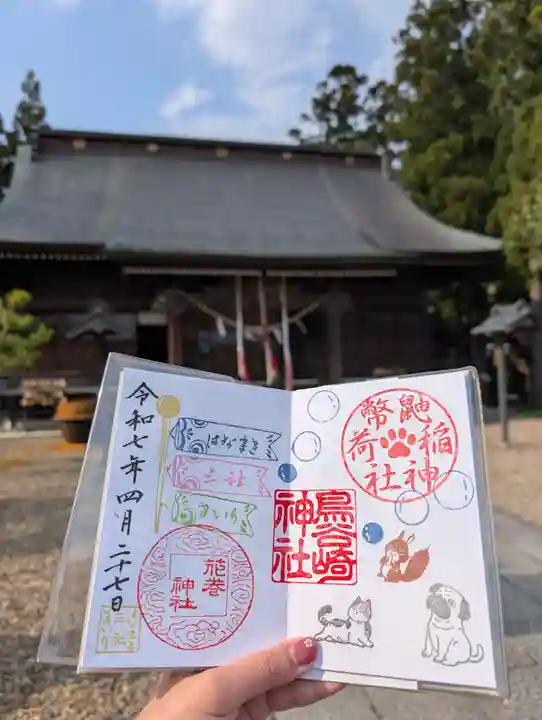 令和七年四月二十七日
はなまき
三社
まいり
花巻
神社
三社
鳥谷崎
神社
鼬
幣
稲
荷
神
社